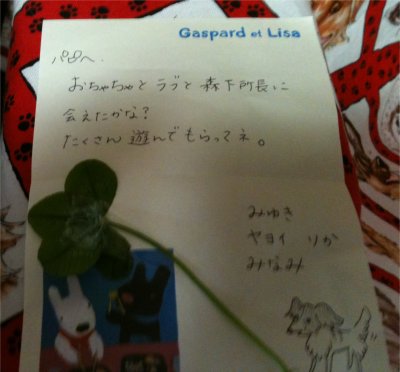 Gaspard et Lisa
パロへ.
おちゃちゃと ラブと 森下所長に
会えたかな?
たくさん 遊んでもらってネ。
みゆき
ヤヨイ りか
みなみ